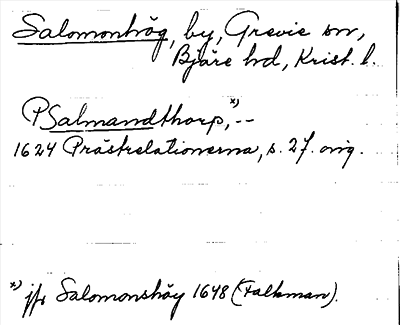 Salomonhög, by, Grevie sn,
Bjäre hd, Krist. l.
P Salmandthorp,*) --
1624 Prästrelationerna, s. 27. orig.
*) jfr Salomonshöy 1648 (Falkman).